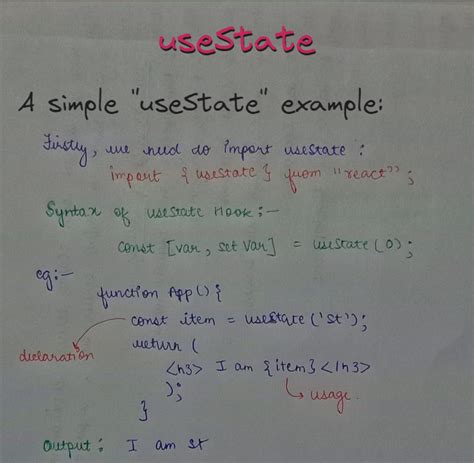 useState
A simple "useState" example:
Firstly, we need do import usestate :
import { usestate } from "react" ;
Syntax of usestate Hook :-
const [var , set Var] = usestate (0) ;
eg:-
function App () {
const item = usestate ('st') ;
declaration
return (
<h3> I am {item} </h3>
) ;
usage.
}
Output : I am st